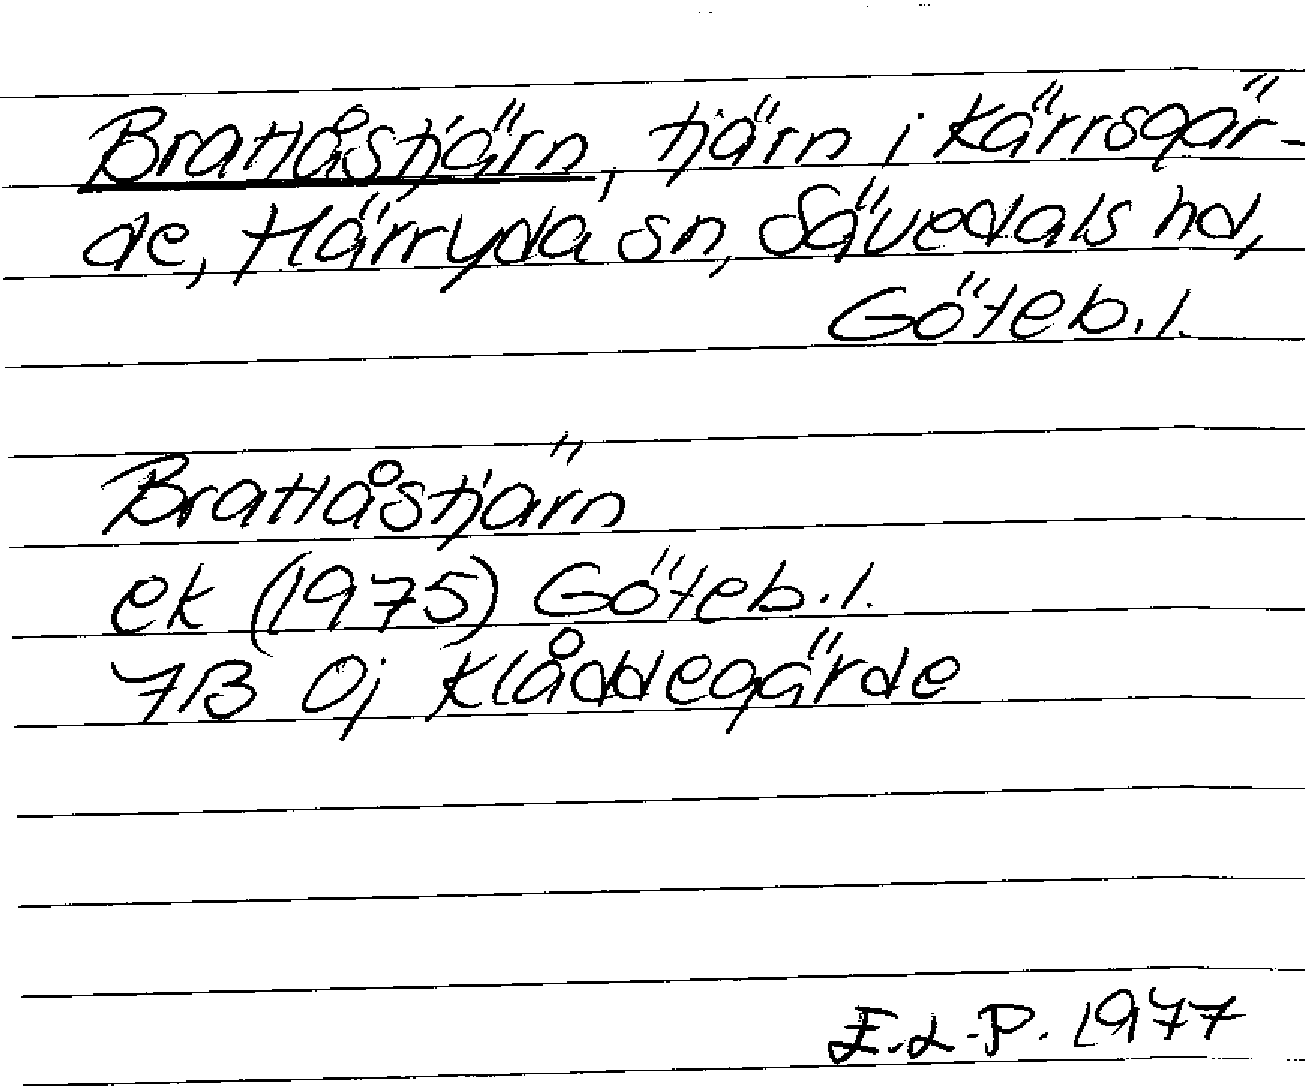 Brattåstjärn, tjärn i Kärrsgär-
de, Härryda sn, Sävedals hd,
Göteb.l.
Brattåstjärn
ek (1975) Göteb.l.
7B 0j Klåddegärde
E.L.P. 1977